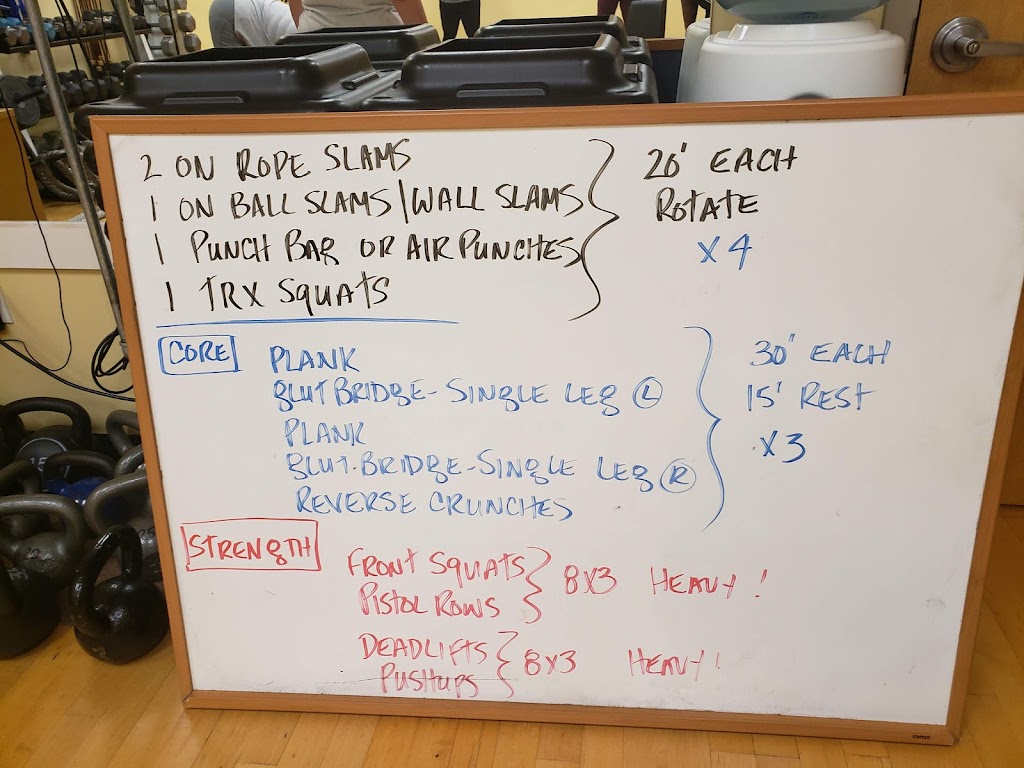 2 ON ROPE SLAMS
1 ON BALL SLAMS/WALL SLAMS
1 PUNCH BAG OR AIR PUNCHES
1 TRX SQUATS
20' EACH
ROTATE
X4
CORE
PLANK
GLUT BRIDGE-SINGLE LEG L
PLANK
GLUT.BRIDGE-SINGLE LEG R
REVERSE CRUNCHES
30' EACH
15' REST
X3
STRENGTH
FRONT SQUATS
PISTOL ROWS
8X3 HEAVY!
DEADLIFTS
PUSHUPS
8X3 HEAVY!